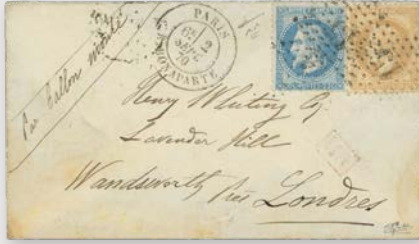 Par ballon monté
PARIS
6E
12
SEPT.
70
R. BONAPARTE
Henry Whiting Esq
Lavender Hill
Wandsworth près Londres